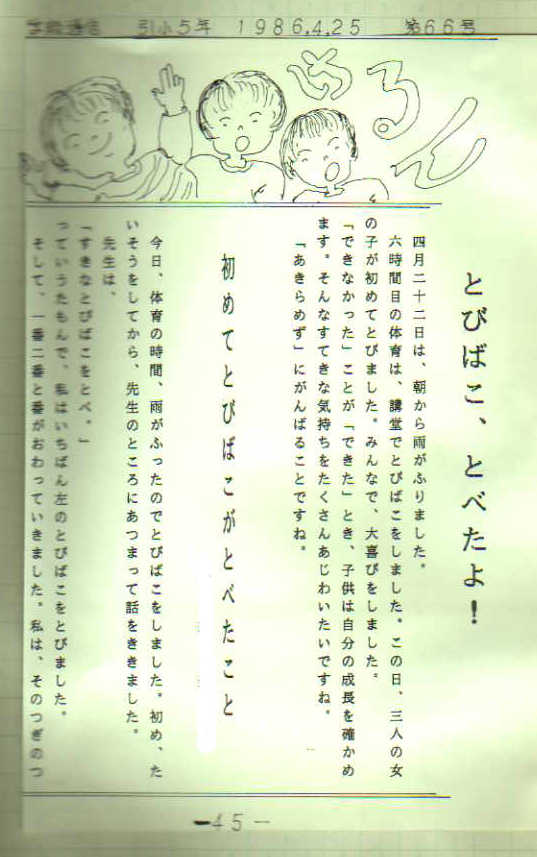 学級通信 引小5年 1986.4.25 第66号
めるへん
とびばこ、とべたよ！
四月二十二日は、朝から雨がふりました。
六時間目の体育は、講堂でとびばこをしました。この日、三人の女
の子が初めてとびました。みんなで、大喜びをしました。
「できなかった」ことが「できた」とき、子供は自分の成長を確かめ
ます。そんなすてきな気持ちをたくさんあじわいたいですね。
「あきらめず」にがんばることですね。
初めてとびばこがとべたこと
今日、体育の時間、雨がふったのでとびばこをしました。初め、た
いそうをしてから、先生のところにあつまって話をききました。
先生は、
「すきなとびばこをとべ。」
っていうたもんで、私はいちばん左のとびばこをとびました。
そして、一番二番と番がおわっていきました。私は、そのつぎのつ
－45－